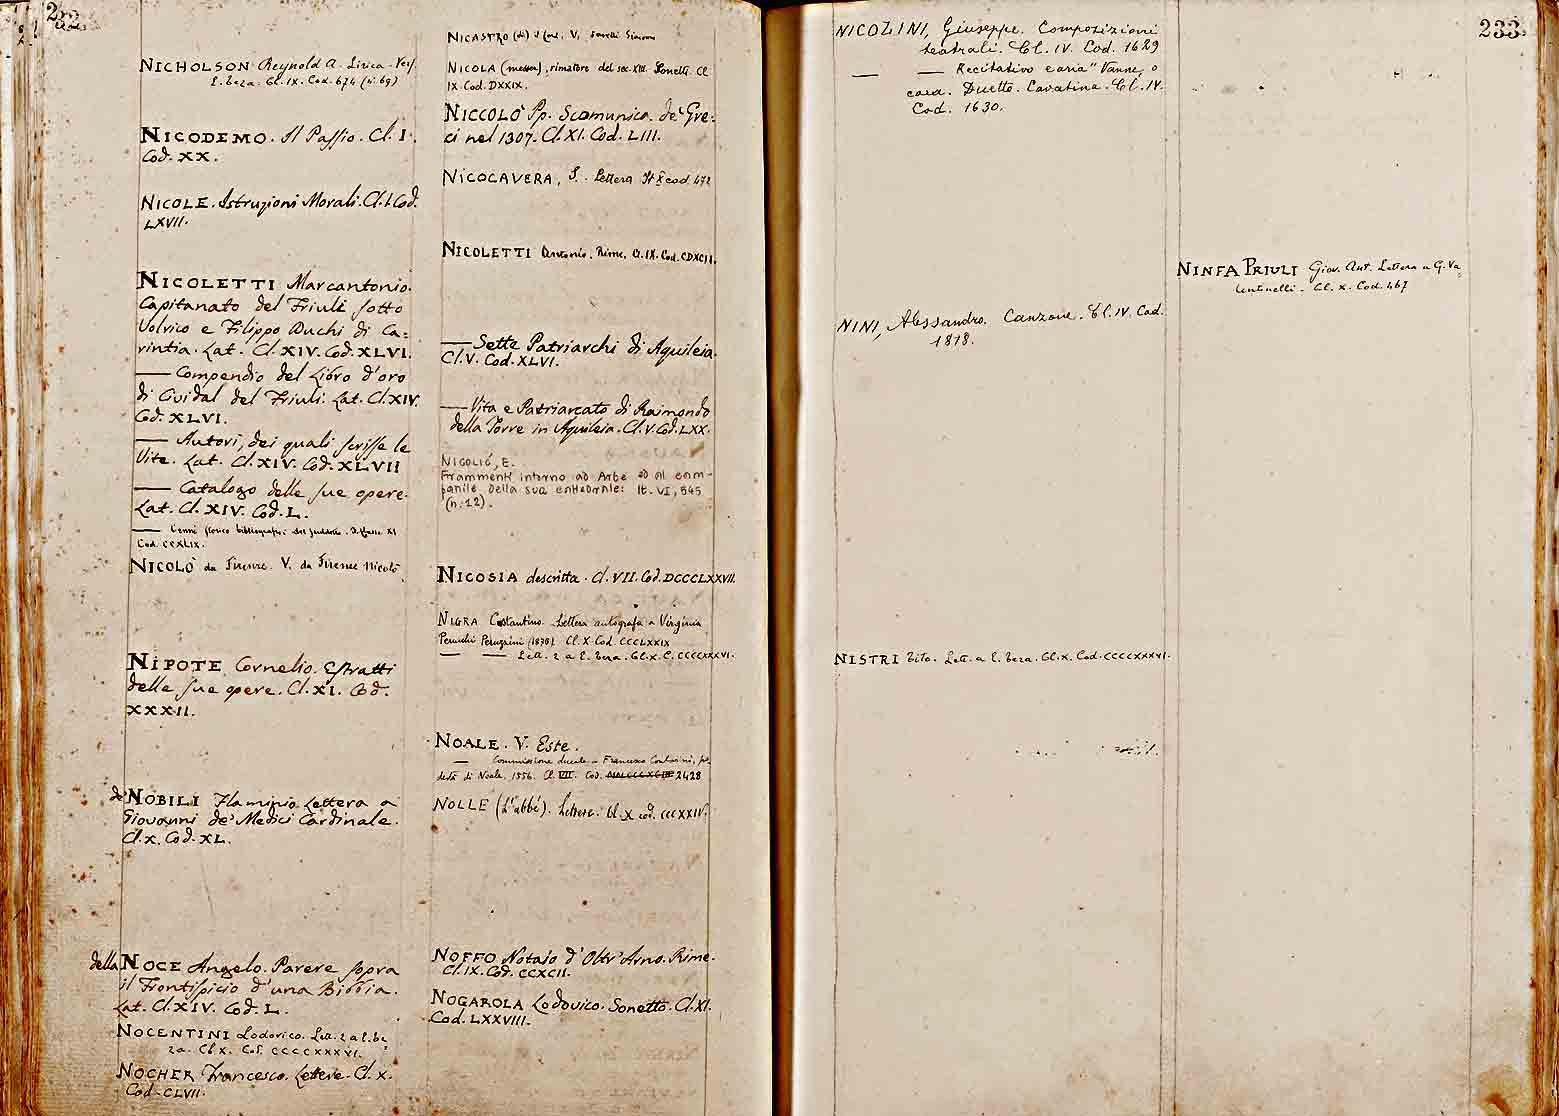 NICHOLSON Reynold A. Lirica.
E. Teza. Cl. IX. Cod. 674 (n. 69)
NICODEMO. Il Passio. Cl. I.
Cod. XX.
NICOLE. Istruzioni Morali. Cl. I. Cod.
LXVII.
NICOLETTI Marcantonio.
Capitanato del Friuli sotto
Volrico e Filippo Duchi di Ca-
rintia. Lat. Cl. XIV. Cod. XLVI.
— Compendio del Libro d'oro
di Cividal del Friuli. Lat. Cl. XIV.
Cod. XLVI.
— Autori, dei quali scrisse le
Vite. Lat. Cl. XIV. Cod. XLVII
— Catalogo delle sue opere.
Lat. Cl. XIV. Cod. L.
— Cenni storico bibliografici del suddetto. Classe XI
Cod. CCXLIX.
NICOLÒ da Firenze. V. da Firenze Nicolò
NIPOTE Cornelio. Estratti
delle sue opere. Cl. XI. Cod.
XXXII.
de NOBILI Flaminio Lettera a
Giovanni de' Medici Cardinale.
Cl. X. Cod. XL.
della NOCE Angelo. Parere sopra
il Frontispicio d'una Bibbia.
Lat. Cl. XIV. Cod. L.
NOCENTINI Lodovico. Lett. 2 a E. Te-
za. Cl. X. Cod. CCCCXXXVI.
NOCHER Francesco. Lettere. Cl. X.
Cod. CLVII.
NICASTRO (di) V. Savelli Simone
NICOLA (messer), rimatore del sec. XIII. Sonetti. Cl
IX. Cod. DXXIX.
NICCOLÒ Pp. Scomunica de' Gre-
ci nel 1307. Cl. XI. Cod. LIII.
NICOCAVERA, S. Lettera It X cod. 472
NICOLETTI Antonio. Rime. Cl. IX. Cod. CDXCII.
— Sette Patriarchi di Aquileia.
Cl. V. Cod. XLVI.
— Vita e Patriarcato di Raimondo
della Torre in Aquileia. Cl. V. Cod. LXX.
NIGOLIĆ, E.
Frammenti intorno ad Arbe ed al cam-
panile della sua cattedrale: It. VI, 545
(n. 12).
NICOSIA descritta. Cl. VII. Cod. DCCCLXXVII.
NIGRA Costantino. Lettera autografa a Virginia
Peruzzini (1878). Cl. X. Cod. CCCLXXIX
— — Lett. 2 a E. Teza. Cl. X. C. CCCCXXXVI.
NOALE. V. Este.
— Commissione ducale a Francesco Contarini, po-
destà di Noale, 1556. Cl. VII. Cod. 2428
NOLLE (L'abbé). Lettere. Cl. X cod. CCCXXIV.
NOFFO Notaio d'Oltr'Arno. Rime.
Cl. IX. Cod. CCXCII.
NOGAROLA Lodovico. Sonetto. Cl. XI.
Cod. LXXVIII.
233.
NICOLINI, Giuseppe. Composizioni
teatrali. Cl. IV. Cod. 1629
— — Recitativo e aria "Vanne, o
cara. Duetto. Cavatina. Cl. IV.
Cod. 1630.
NINI, Alessandro. Canzone. Cl. IV. Cod.
1818.
NISTRI Tito. Lett. a E. Teza. Cl. X. Cod. CCCCXXXVI.
NINFA PRIULI Giov. Ant. Lettera a G. Va-
lentinelli. Cl. X. Cod. 467